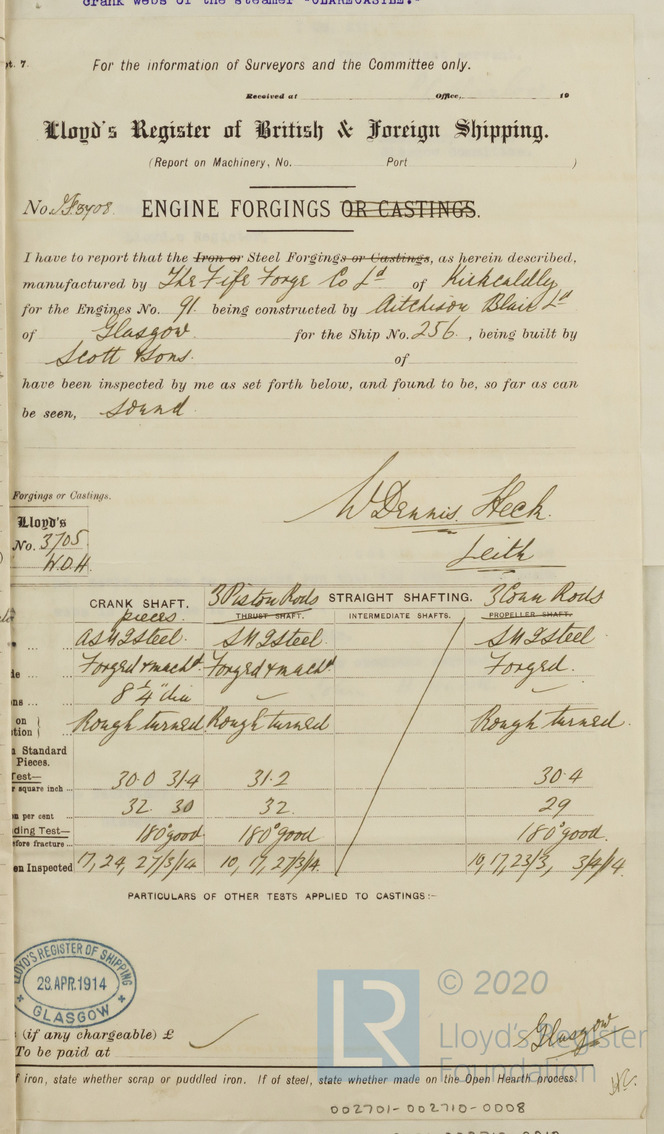 crank webs of the steamer "CLARECASTLE."
pt. 7.
For the information of Surveyors and the Committee only.
Received at Office, 19
Lloyd's Register of British & Foreign Shipping.
(Report on Machinery, No. Port )
No. 3708. ENGINE FORGINGS OR CASTINGS.
I have to report that the Iron or Steel Forgings or Castings, as herein described,
manufactured by The Fife Forge Co Ld of Kirkcaldy
for the Engines No. 91. being constructed by Aitchison Blair Ld
of Glasgow for the Ship No. 256., being built by
Scott & Sons. of
have been inspected by me as set forth below, and found to be, so far as can
be seen, sound
Forgings or Castings.
W Dennis Heck.
Leith
Lloyd's
No. 3705
W.D.H.
CRANK SHAFT. pieces. 3 Piston Rods THRUST SHAFT. STRAIGHT SHAFTING. INTERMEDIATE SHAFTS. 3 Conn Rods PROPELLER SHAFT.
Steel. Steel. Steel
Forged & machd. Forged & machd Forged.
ns ... 8 1/4" dia
on Rough turned Rough turned Rough turned.
tion
Standard
Pieces.
Test—
square inch ... 30.0 31.4 31.2 30.4
per cent 32 30 32. 29
ding Test— 180° good 180° good 180° good.
efore fracture ...
en Inspected 17, 24, 27/3/14 10, 17, 27/3/14. 10, 17, 23/3, 3/4/14.
PARTICULARS OF OTHER TESTS APPLIED TO CASTINGS:—
LLOYD'S REGISTER OF SHIPPING
28. APR. 1914
GLASGOW
LR © 2020
Lloyd's Register
Foundation
Glasgow
(if any chargeable) £
To be paid at
f iron, state whether scrap or puddled iron. If of steel, state whether made on the Open Hearth process.
002701-002710-0008